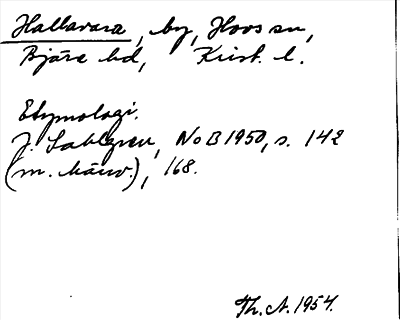 Hallavara, by, Hovs sn,
Bjäre hd, Krist. l.
Etymologi.
J. Sahlgren, NoB 1950, s. 142
(m. hänv.), 168.
Th. A. 1954.